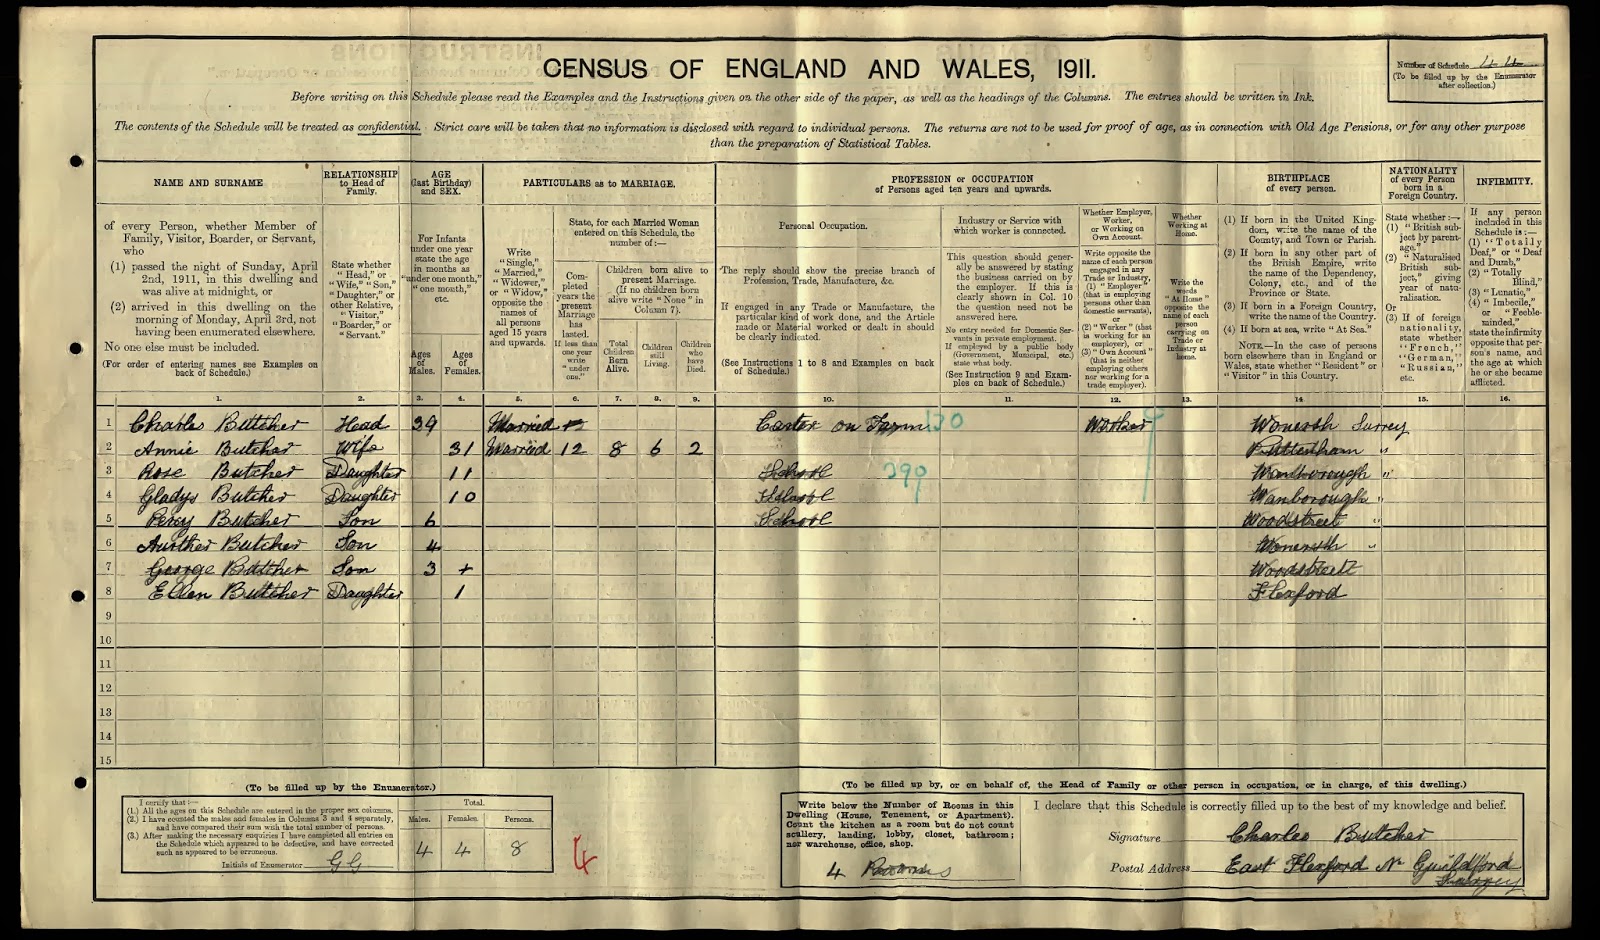 CENSUS OF ENGLAND AND WALES, 1911.
Number of Schedule 44
(To be filled up by the Enumerator
after collection.)
Before writing on this Schedule please read the Examples and the Instructions given on the other side of the paper, as well as the headings of the Columns. The entries should be written in Ink.
The contents of the Schedule will be treated as confidential. Strict care will be taken that no information is disclosed with regard to individual persons. The returns are not to be used for proof of age, as in connection with Old Age Pensions, or for any other purpose
than the preparation of Statistical Tables.
NAME AND SURNAME
RELATIONSHIP
to Head of
Family.
AGE
(last Birthday)
and SEX.
PARTICULARS as to MARRIAGE.
PROFESSION or OCCUPATION
of Persons aged ten years and upwards.
BIRTHPLACE
of every person.
NATIONALITY
of every Person
born in a
Foreign Country.
INFIRMITY.
of every person, whether Member of
Family, Visitor, Boarder, or Servant,
who
(1) passed the night of Sunday, April
2nd, 1911, in this dwelling and
was alive at midnight, or
(2) arrived in this dwelling on the
morning of Monday, April 3rd, not
having been enumerated elsewhere.
No one else must be included.
(For order of entering names see Examples on
back of Schedule.)
State whether
"Head," or
"Wife," "Son,"
"Daughter," or
other Relative,
"Visitor,"
"Boarder," or
"Servant."
For Infants
under one year
state the age
in months as
"under one month,"
"one month,"
etc.
Ages
of
Males.
Ages
of
Females.
Write
"Single,"
"Married,"
"Widower,"
or "Widow,"
opposite the
names of
all persons
aged 15 years
and upwards.
State, for each Married Woman
entered on this Schedule, the
number of:—
Com-
pleted
years the
present
Marriage
has
lasted.
If less than
one year
write
"under
one."
Children born alive to
present Marriage.
(If no children born
alive write "None" in
Column 7).
Total
Children
Born
Alive.
Children
still
Living.
Children
who
have
Died.
Personal Occupation.
The reply should show the precise branch of
Profession, Trade, Manufacture, &c.
If engaged in any Trade or Manufacture, the
particular kind of work done, and the Article
made or Material worked or dealt in should
be clearly indicated.
(See Instructions 1 to 8 and Examples on back
of Schedule.)
Industry or Service with
which worker is connected.
This question should gener-
ally be answered by stating
the business carried on by
the employer. If this is
clearly shown in Col. 10
the question need not be
answered here.
No entry needed for Domestic Ser-
vants in private employment.
If employed by a public body
(Government, Municipal, etc.)
state what body.
(See Instruction 9 and Exam-
ples on back of Schedule.)
Whether Employer,
Worker,
or Working on
Own Account.
Write opposite the
name of each person
engaged in any
Trade or Industry,
(1) "Employer"
(that is employing
persons other than
domestic servants),
or
(2) "Worker" (that
is working for an
employer), or
(3) "Own Account"
(that is neither
employing others
nor working for a
trade employer).
Whether
Working at
Home.
Write the
words
"At Home"
opposite the
name of each
person
carrying on
Trade or
Industry at
home.
(1) If born in the United King-
dom, write the name of the
County, and Town or Parish.
(2) If born in any other part of
the British Empire, write
the name of the Dependency,
Colony, etc., and of the
Province or State.
(3) If born in a Foreign Country,
write the name of the Country.
(4) If born at sea, write "At Sea."
NOTE.—In the case of persons
born elsewhere than in England or
Wales, state whether "Resident" or
"Visitor" in this Country.
State whether:—
(1) "British sub-
ject by parent-
age."
(2) "Naturalised
British sub-
ject," giving
year of natu-
ralisation.
Or
(3) If of foreign
nationality,
state whether
"French,"
"German,"
"Russian,"
etc.
If any person
included in this
Schedule is:—
(1) "Totally
Deaf," or "Deaf
and Dumb,"
(2) "Totally
Blind,"
(3) "Lunatic,"
(4) "Imbecile,"
or "Feeble-
minded,"
state the infirmity
opposite that per-
son's name, and
the age at which
he or she became
afflicted.
1. 2. 3. 4. 5. 6. 7. 8. 9. 10. 11. 12. 13. 14. 15. 16.
1 Charles Butcher Head 39 Married Carter on Farm 130 Worker Wonersh Surrey
2 Annie Butcher Wife 31 Married 12 8 6 2 Puttenham "
3 Rose Butcher Daughter 11 School 399 Wanborough "
4 Gladys Butcher Daughter 10 School Wanborough "
5 Percy Butcher Son 6 School Woodstreet "
6 Aurther Butcher Son 4 Wonersh "
7 George Butcher Son 3 + Woodstreett
8 Ellen Butcher Daughter 1 Flexford
9
10
11
12
13
14
15
(To be filled up by the Enumerator.)
I certify that:—
(1.) All the ages on this Schedule are entered in the proper sex columns.
(2.) I have counted the males and females in Columns 3 and 4 separately,
and have compared their sum with the total number of persons.
(3.) After making the necessary enquiries I have completed all entries on
the Schedule which appeared to be defective, and have corrected
such as appeared to be erroneous.
Initials of Enumerator GG
Total.
Males. Females. Persons.
4 4 8
4
(To be filled up by, or on behalf of, the Head of Family or other person in occupation, or in charge, of this dwelling.)
Write below the Number of Rooms in this
Dwelling (House, Tenement, or Apartment).
Count the kitchen as a room but do not count
scullery, landing, lobby, closet, bathroom;
nor warehouse, office, shop.
4 Rooms
I declare that this Schedule is correctly filled up to the best of my knowledge and belief.
Signature Charles Butcher
Postal Address East Flexford Nr Guildford
Surrey